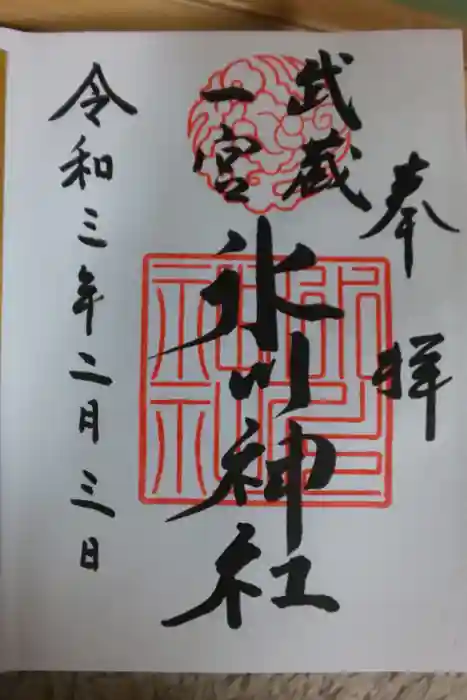 奉拝
武蔵
一宮
氷川神社
令和三年二月三日
氷川神社